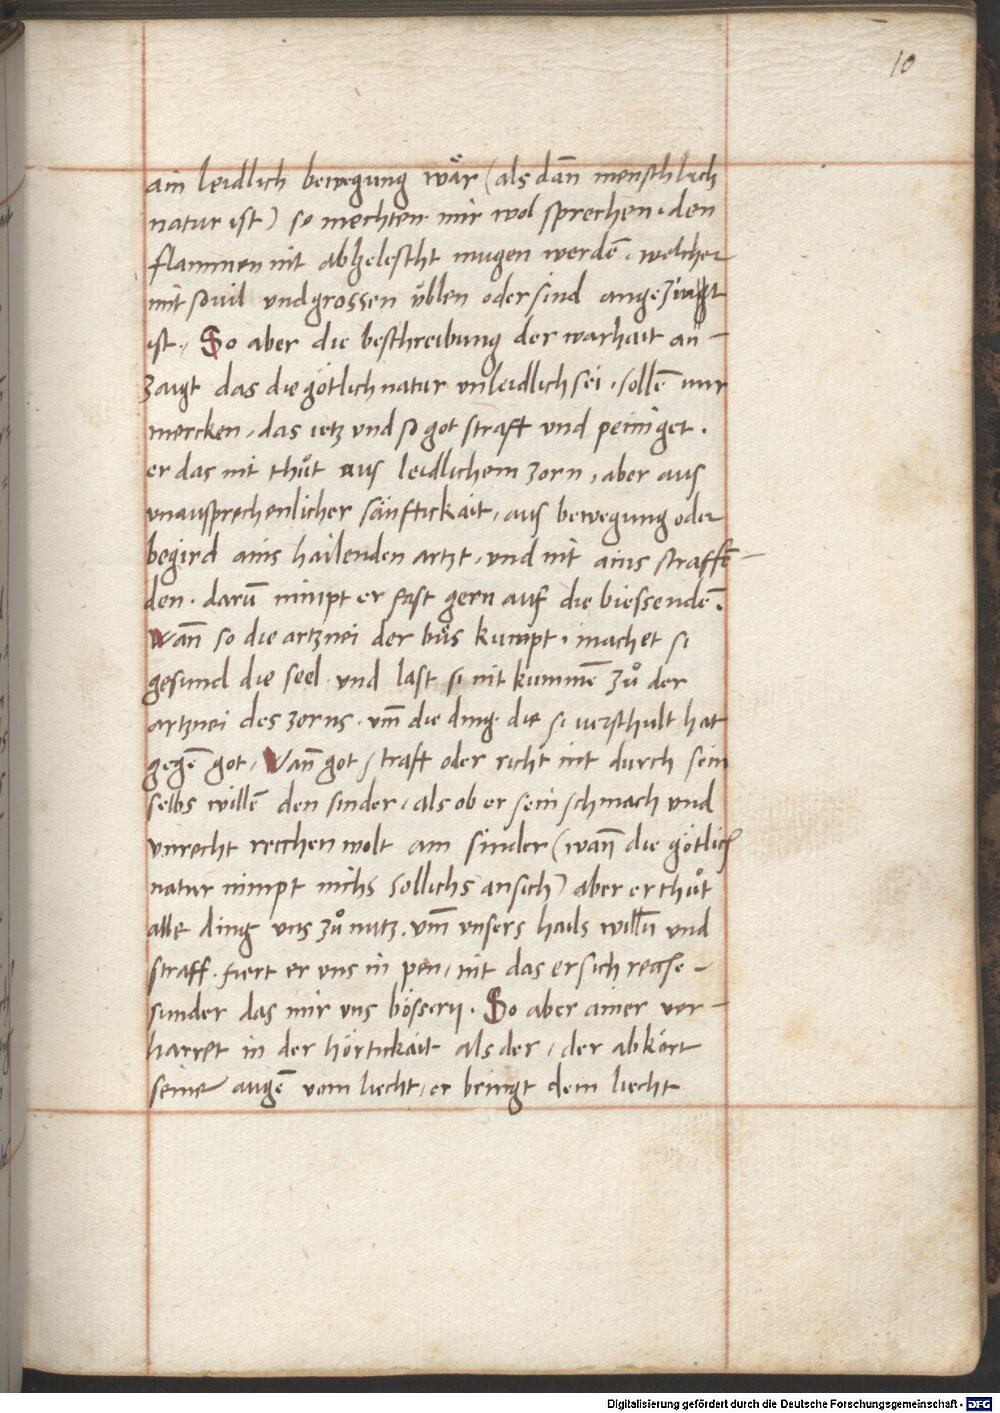 10
ain leidlich bewegung wär (als dañ menschlich
natur ist) so mechten mir wol sprechen. den
flammen nit abgelescht mugen werdē. welcher
mit souil vnd grossen üblen oder sind angezingt
ist. So aber die beschreibung der warhait an¬
zaigt das die götlich natur vnleidlich sei, sollē mir
mercken, das ietz vnd so got strafft vnd peiniget.
er das nit thůt aus leidlichem zorn, aber aus
vnaussprechenlicher sänftickait, aus bewegung oder
begird ains hailenden artzt, vnd nit ains straffē¬
den. darū nimpt er fast gern auf die biessendē.
Wañ so die artznei der bůs kumpt, machet si
gesund die seel vnd last si nit kummē zů der
artznei des zorns. vm̄ die ding. die si verschult hat
gegē got, Wañ got straft oder richt nit durch sein
selbs willē den sinder, als ob er sein schmach vnd
vnrecht rechen wolt am sinder (wañ die götlich
natur nimpt nichs sollichs an sich) aber er thůt
alle ding vns zů nutz. vm̄ vnsers hails willn̄ vnd
straff. fiert er vns in pen, nit das er sich reche¬
sunder das mir vns bössern. So aber ainer ver¬
harret in der hörtickait als der, der abkört
seine augē vom liecht, er bringt dem liecht
Digitalisierung gefördert durch die Deutsche Forschungsgemeinschaft - DFG